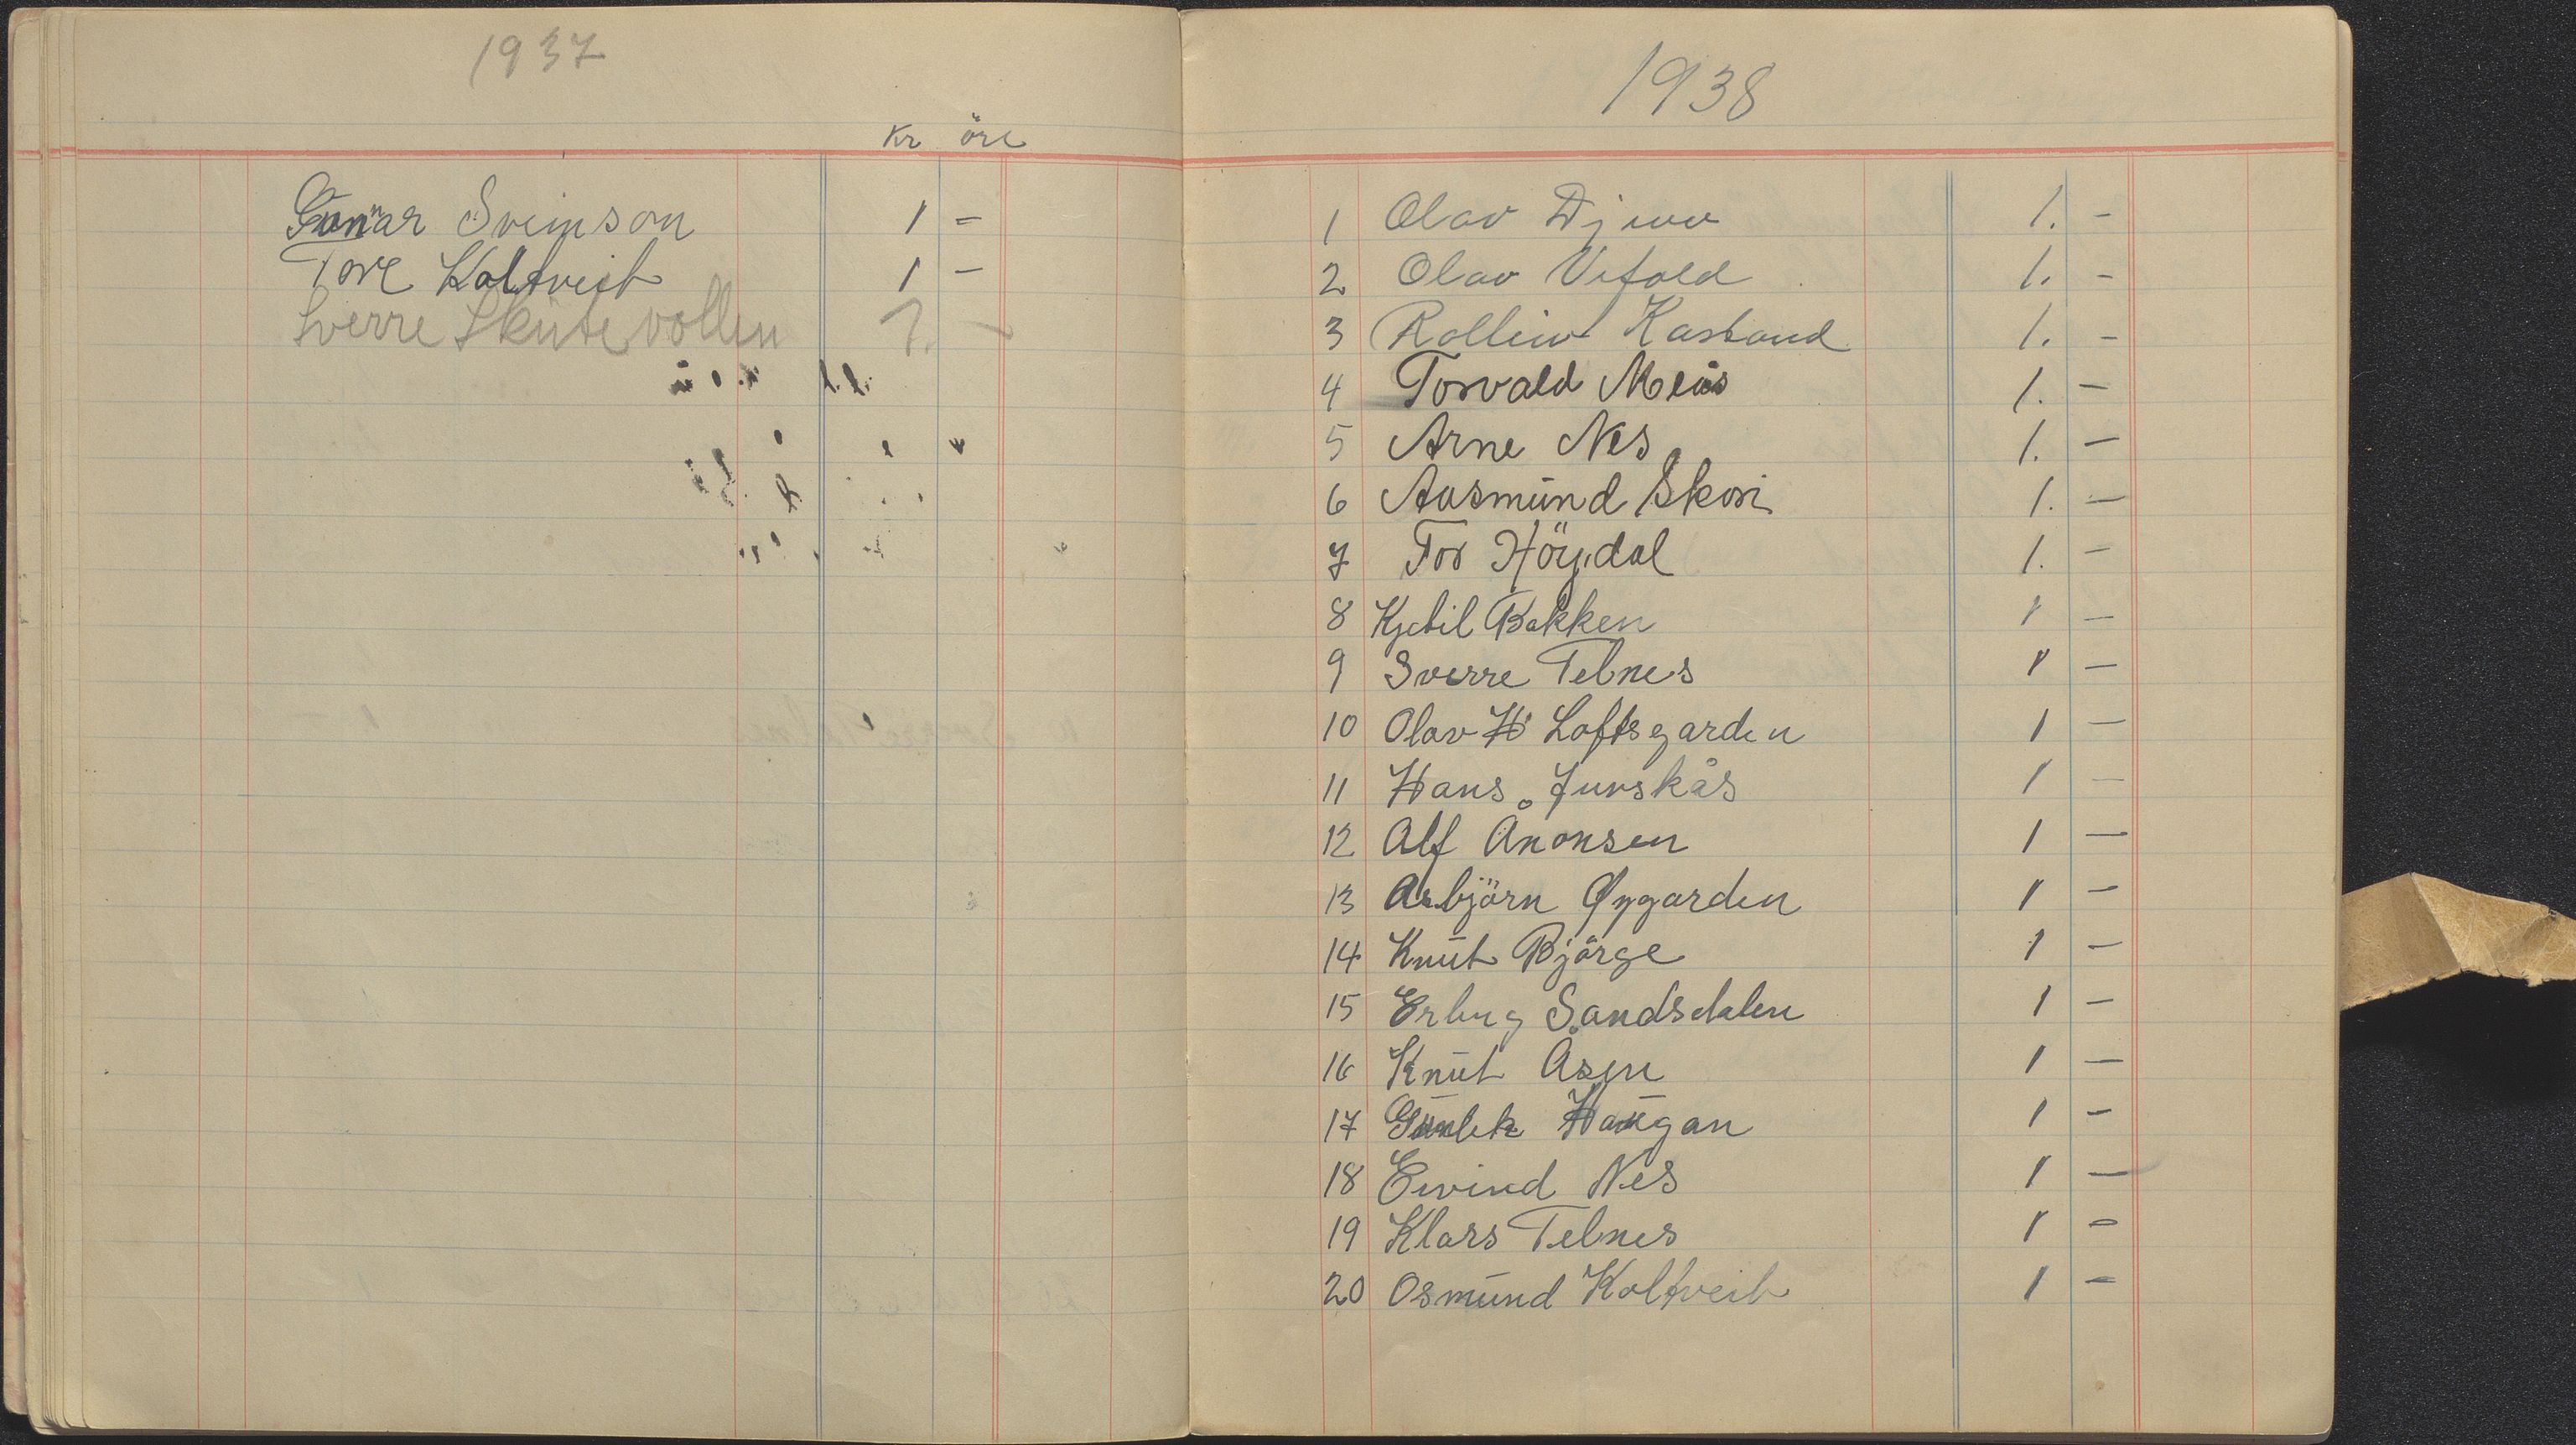 1937
Kr öre
Gunnar Sveinson 1 -
Tore Koltveit 1 -
Sverre Skutevollen 1. -
1938
1 Olav Djuve 1. -
2 Olav Vefald 1. -
3 Rolleiv Kasland 1. -
4 Torvald Meås 1. -
5 Arne Nes 1. -
6 Aasmund Skori 1. -
7 Tor Höydal 1. -
8 Kjetil Bakken 1 -
9 Sverre Telnes 1 -
10 Olav H Loftsgarden 1 -
11 Hans Furskås 1 -
12 Alf Ånonsen 1 -
13 Asbjörn Øygarden 1 -
14 Knut Björge 1 -
15 Erling Sandsdalen 1 -
16 Knut Åsen 1 -
17 Gunlek Haugan 1 -
18 Eivind Nes 1 -
19 Klars Telnes 1 -
20 Osmund Koltveit 1 -